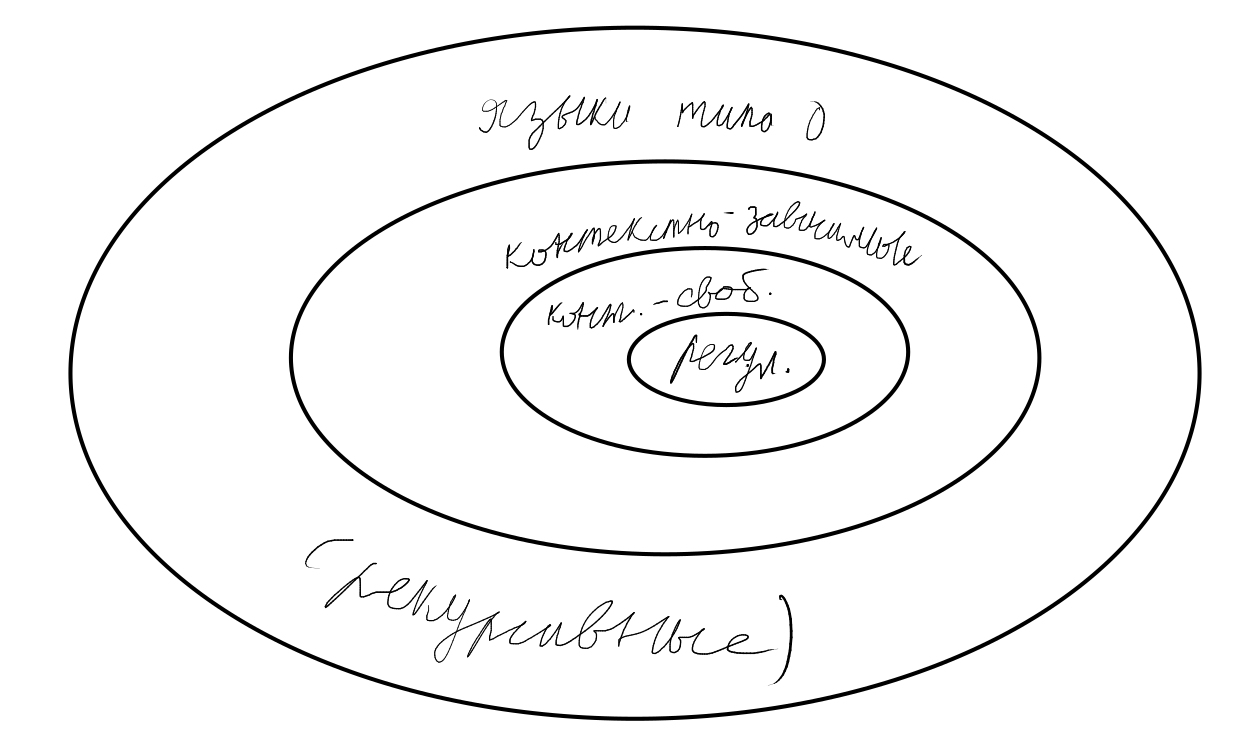 языки типа 0
контекстно-зависимые
конт.-своб.
регул.
(рекурсивные)